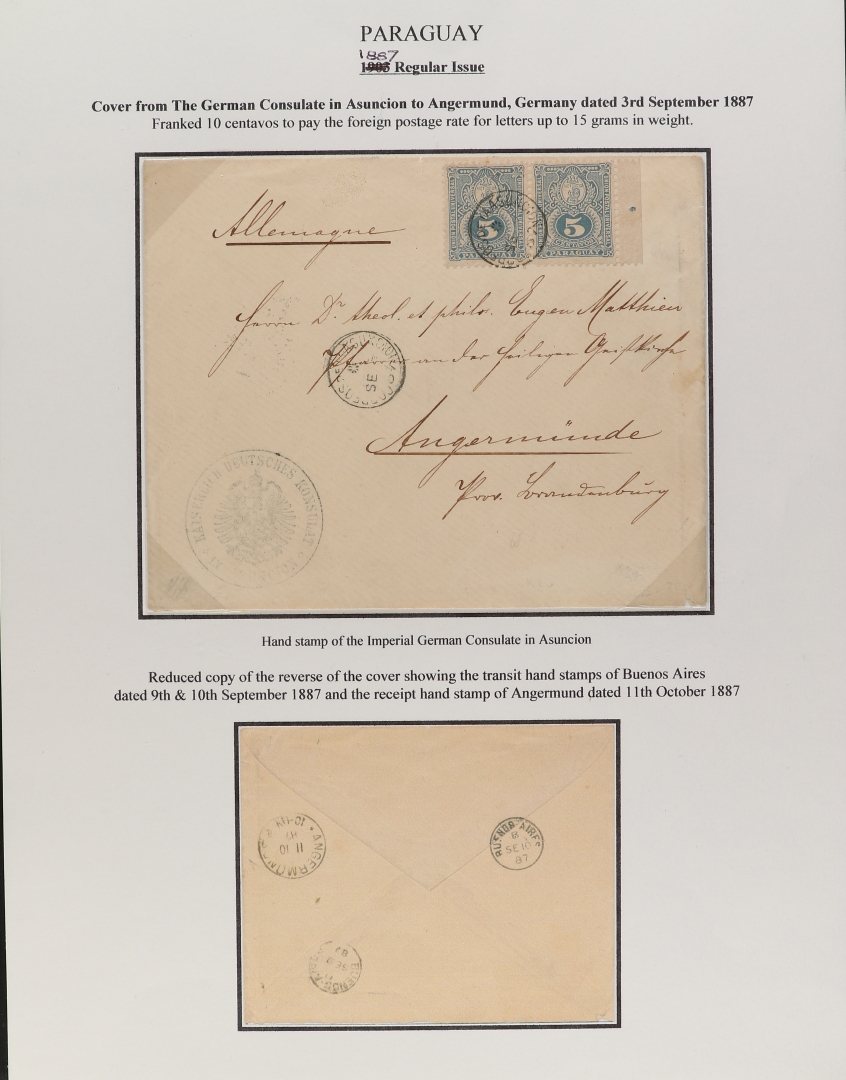 PARAGUAY
1887
1903 Regular Issue
Cover from The German Consulate in Asuncion to Angermund, Germany dated 3rd September 1887
Franked 10 centavos to pay the foreign postage rate for letters up to 15 grams in weight.
5 5
CENTAVOS
PARAGUAY PARAGUAY
ASUNCION
Allemagne
Herrn Dr. theol. et philos. Eugen Matthieu
Pfarrer an der heiligen Geistkirche
SE
Angermünde
Prov. Brandenburg
KAISERLICH DEUTSCHES KONSULAT
Hand stamp of the Imperial German Consulate in Asuncion
Reduced copy of the reverse of the cover showing the transit hand stamps of Buenos Aires
dated 9th & 10th September 1887 and the receipt hand stamp of Angermund dated 11th October 1887
ANGERMÜNDE
11 10
87
BUENOS AIRES
SE 10
87
BUENOS AIRES
SE 9
87